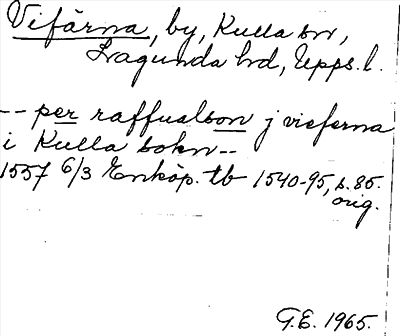 Vifärna, by, Kulla sn,
Lagunda hd, Upps. l.
-- per raffualson j vieferna
i Kulla sokn --
1557 6/3 Enköp. tb 1540-95, s. 85.
orig.
G.E. 1965.